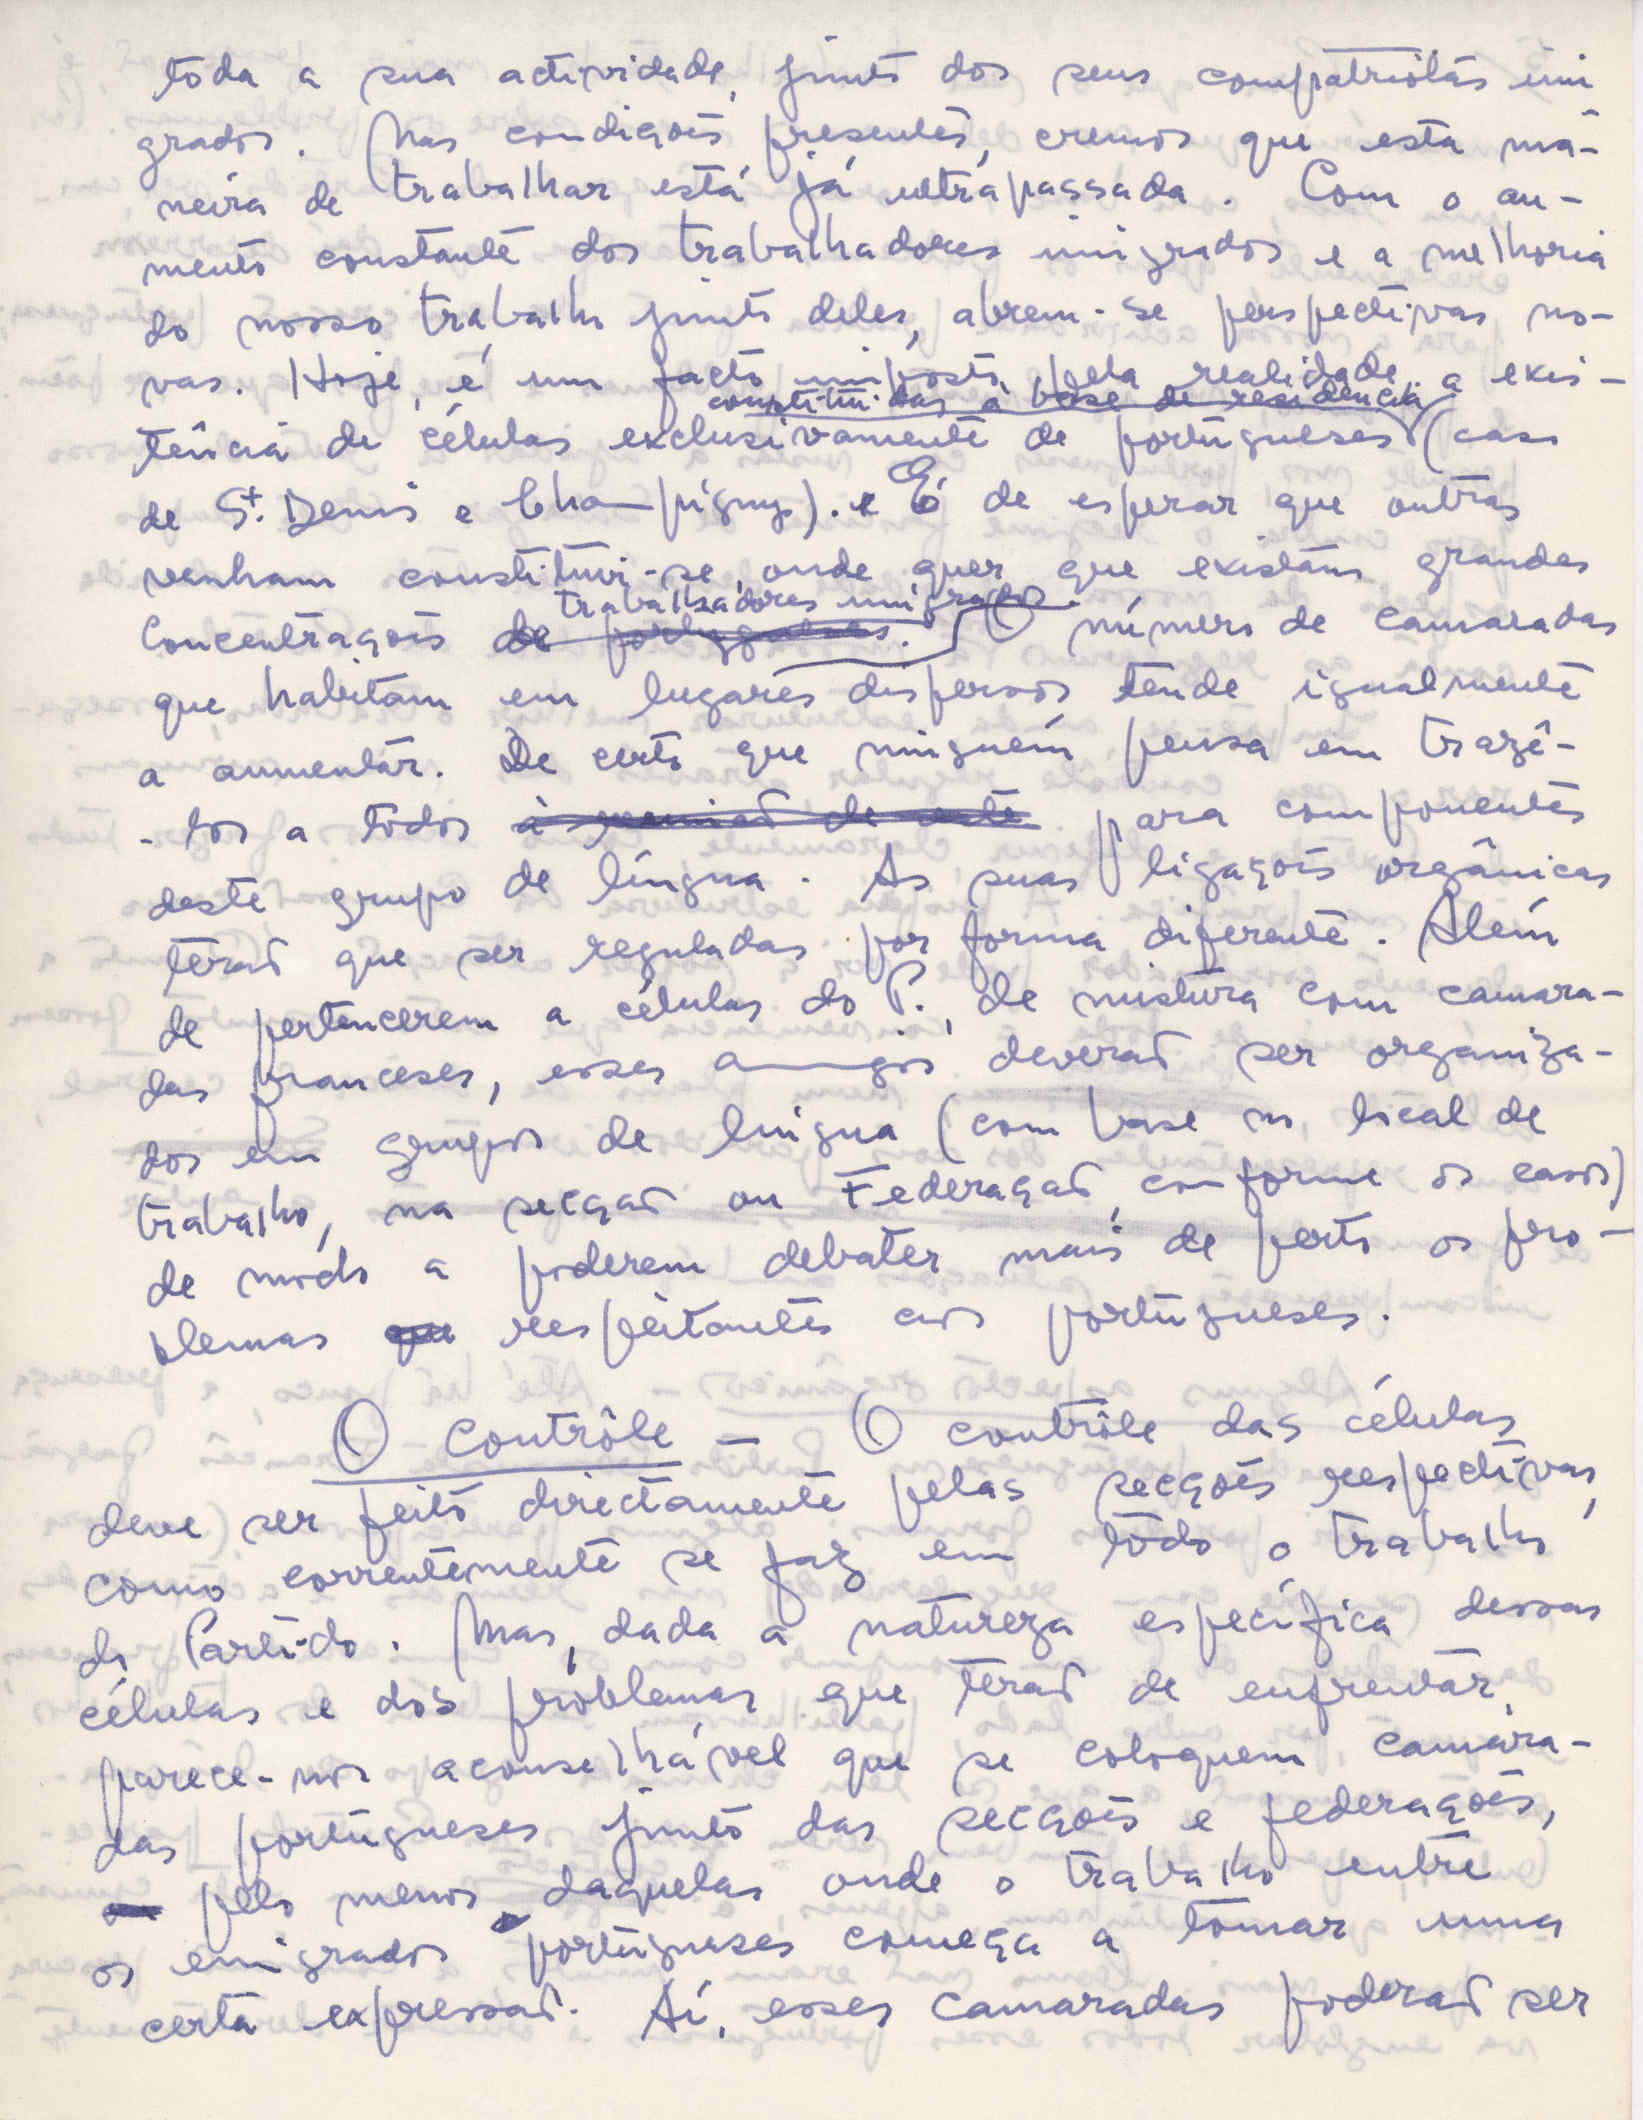 tôda a sua actividade, junto dos seus compatriotas imi
grados. Mas condições presentes, cremos que esta ma-
neira de trabalhar está já ultrapassada. Com o au-
mento constante dos trabalhadores imigrados e a melhoria
do nosso trabalho junto deles, abrem-se perspectivas no-
vas. Hoje, é um facto imposto pela realidade a exis-
constituidas à base de residência
tência de células exclusivamente de portugueses (caso
de St. Denis e Champigny). e É de esperar que outras
venham constituir-se, onde quer que existam grandes
trabalhadores imigrados.
Concentrações de portugueses. O número de camaradas
que habitam em lugares dispersos tende igualmente
a aumentar. De certo que ninguém pensa em trazê-
-los a todos à reunião de este para componentes
deste grupo de língua. As suas ligações orgânicas
terão que ser reguladas por forma diferente. Além
de pertencerem a células do P., de mistura com camara-
das franceses, esses amigos deverão ser organiza-
dos em grupos de lingua (com base no local de
trabalho, na secção ou Federação, conforme os casos)
de modo a poderem debater mais de perto os pro-
blemas que respeitantes aos portugueses.
O contrôle - O contrôle das células
deve ser feito directamente pelas secções respectivas,
como correntemente se faz em todo o trabalho
do Partido. Mas, dada a natureza específica dessas
células e dos problemas que terão de enfrentar,
parece-nos aconselhável que se coloquem camara-
das portugueses junto das secções e federações,
ou pelo menos daquelas onde o trabalho entre
os emigrados portugueses começa a tomar uma
certa expressão. Aí, esses camaradas poderão ser